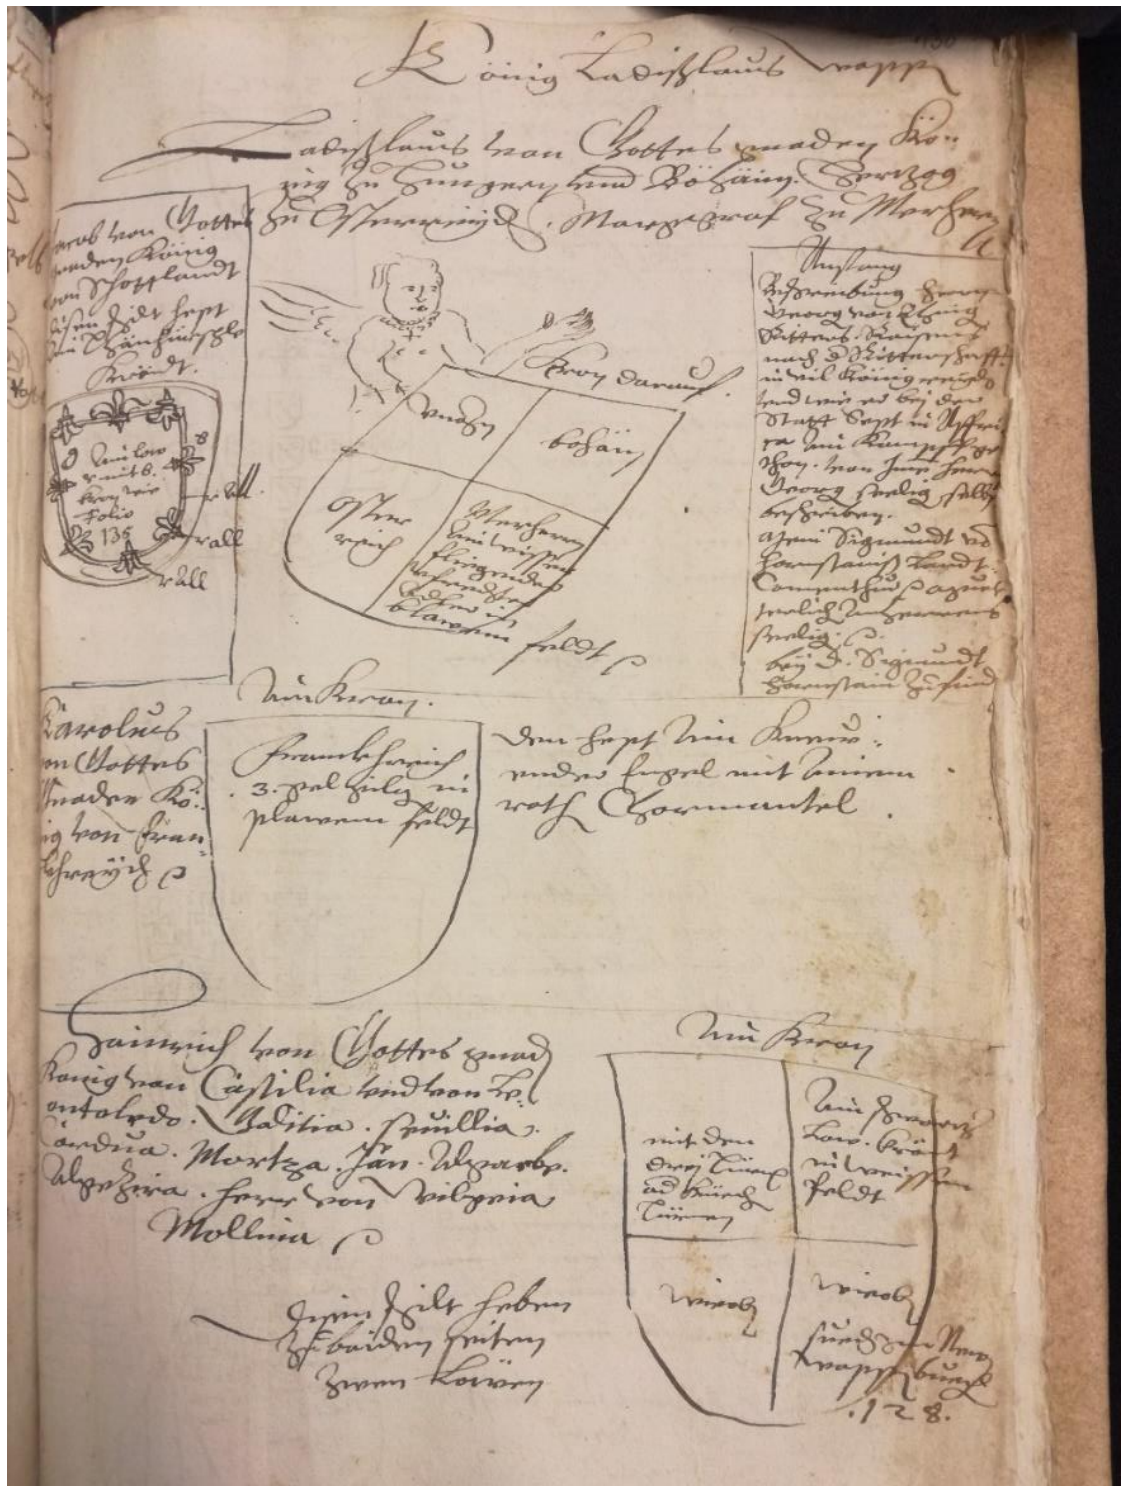 König Ladißlaus wapp
Ladißlaus von Gottes gnaden Kö-
nig zu Hungern vnd Böhäim. Hertzog
zu Osterreiych. Marggraf zu Merhern
Jacob von Gottes
gnaden König
von Schottlandt
disen schilt hept
ein
Kröndt.
Ain low
r mit 8.
kron wie
Folio
135
r all
r all
r all
Kron darauf.
vngern
böhäim
Oster
reich
Merhern
Ain weissen
fliegenden
Adler in
blawem feldt
Anfang
Beschreibung herrn
Georg von Ehing
Ritters Raisens
nach d Ritterschafft
in vil Königreich
vnd wie er bei der
Statt Sept in Affri
ca ain Kampff ge
thon. von Jme herrn
Georg seelig selbs
beschriben.
Sigmundt vo
Hornstains Landt
Comenthur
seelig.
bey d. Sigmundt
Hornstain zufind
Ain Kron.
Karolus
von Gottes
gnaden Kö-
nig von Fran-
khreych
Frankhreich
3. gel gilg in
plawem feldt
den hept ain Knew-
ender Engel mit ainem
roth Chormantel.
Hainrich von Gottes gnad
Konig von Castilia vnd von Le-
on toledo. Galitia. seuillia.
Cordua. Mortza. Jan. Algarbe.
Algezira. herr von vilgeia
Mollina
disen schilt heben
zu baiden seiten
zwen Löwen
Ain Kron
mit den
dreij türn
türnen
Ain schwartz
Low. krönt
in weissem
feldt
wie ob
wie ob
such im New
wappenbuech
.128.